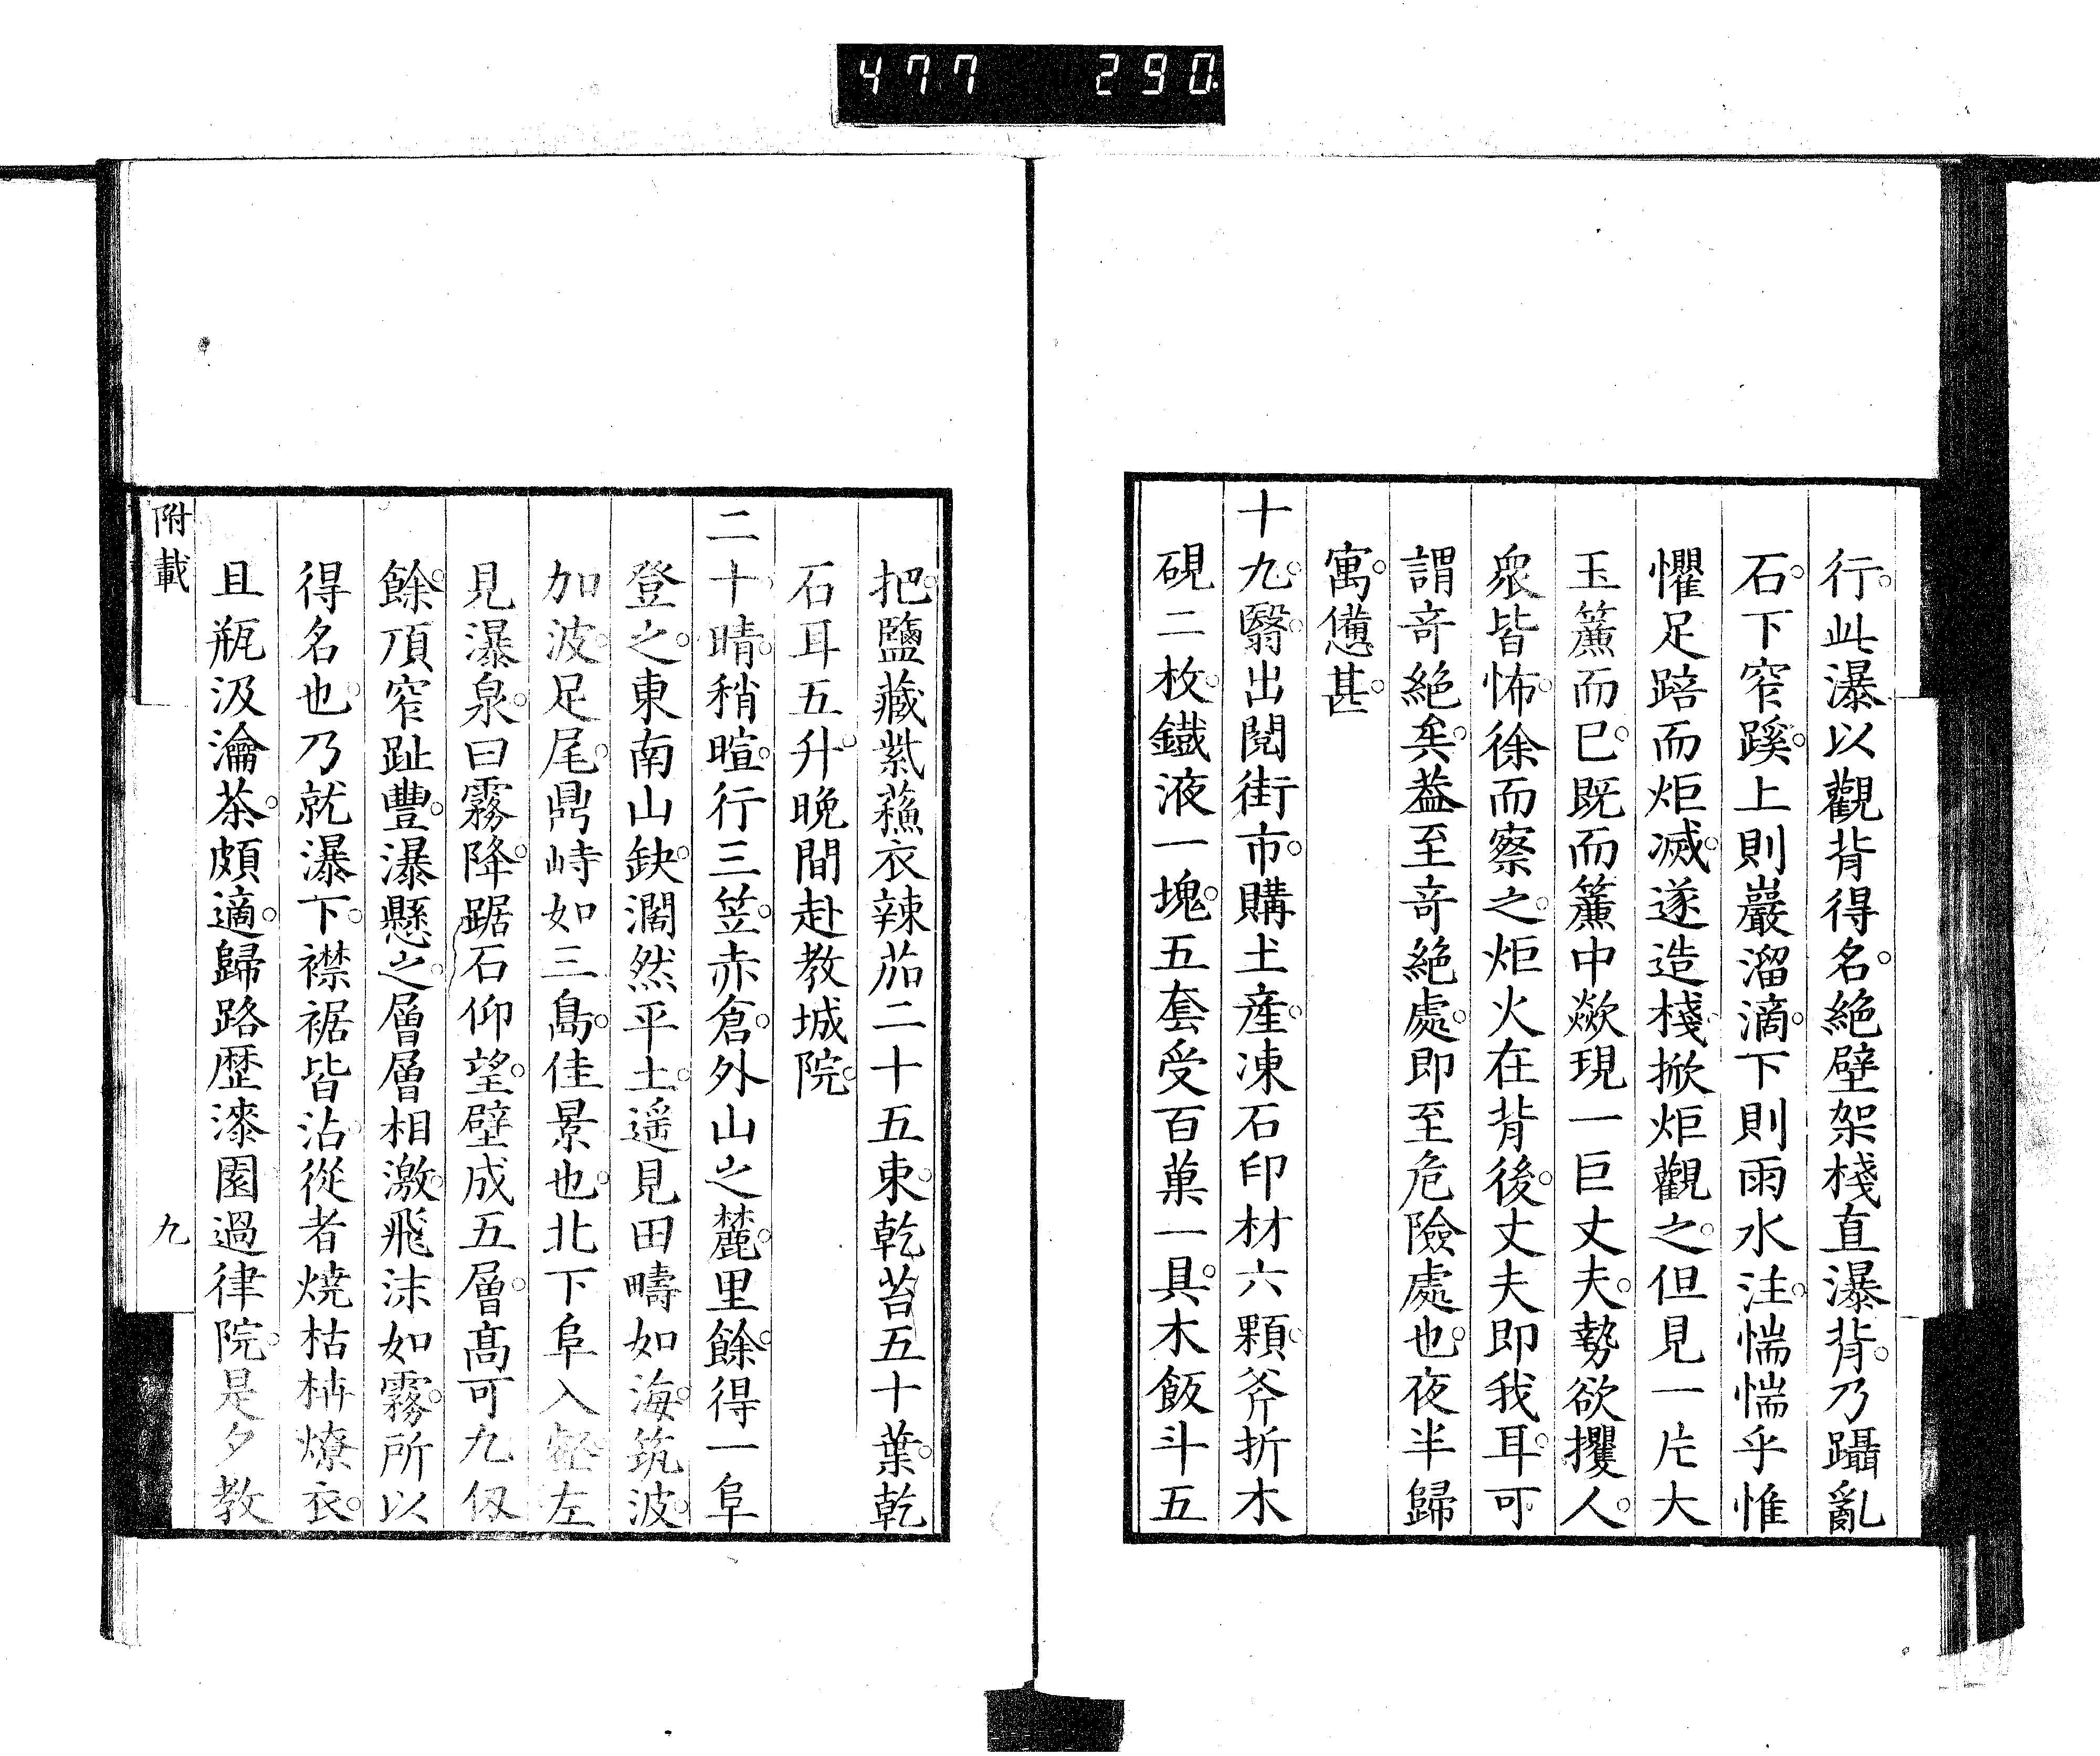 477 290
行。此瀑以觀背得名。絶壁架棧直瀑背。乃躡亂
石。下窄蹊。上則巖溜滴。下則雨水注。惴惴乎惟
懼足踣而炬滅。遂造棧掀炬觀之。但見一片大
玉簾而已。既而簾中歘現一巨丈夫。勢欲攫人。
衆皆怖。徐而察之。炬火在背後。丈夫即我耳。可
謂竒絶矣。葢至竒絶處。即至危險處也。夜半歸
寓。憊甚。
十九。翳。出閲街市。購土産。凍石印材六顆。斧折木
硯二枚。鐵液一塊。五套受百菓一具。木飯斗五
把。鹽藏紫蘓衣辣茄二十五束。乾苔五十葉。乾
石耳五升。晩間赴教城院。
二十。晴。稍暄。行三笠。赤倉。外山之麓。里餘。得一阜
登之。東南山缺。濶然平土。遥見田疇如海。筑波。
加波。足尾。鼎峙如三島。佳景也。北下阜入壑。左
見瀑泉。曰霧降。踞石仰望。壁成五層。髙可九仭
餘。頂窄趾豐。瀑懸之。層層相激。飛沫如霧。所以
得名也。乃就瀑下。襟裾皆沾。從者燒枯枿燎衣。
且瓶汲瀹茶。頗適。歸路歴漆園過律院。是夕教
附載
九